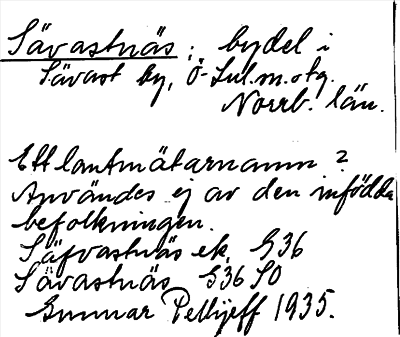 Sävastnäs: bydel i
Sävast by, Ö-Lul.m.otg.
Norrb. län.
Ett lantmätarnamn?
Användes ej av den infödda
befolkningen.
Säfvastnäs ek. G36
Sävastnäs G36 SO
Gunnar Pellijeff 1935.